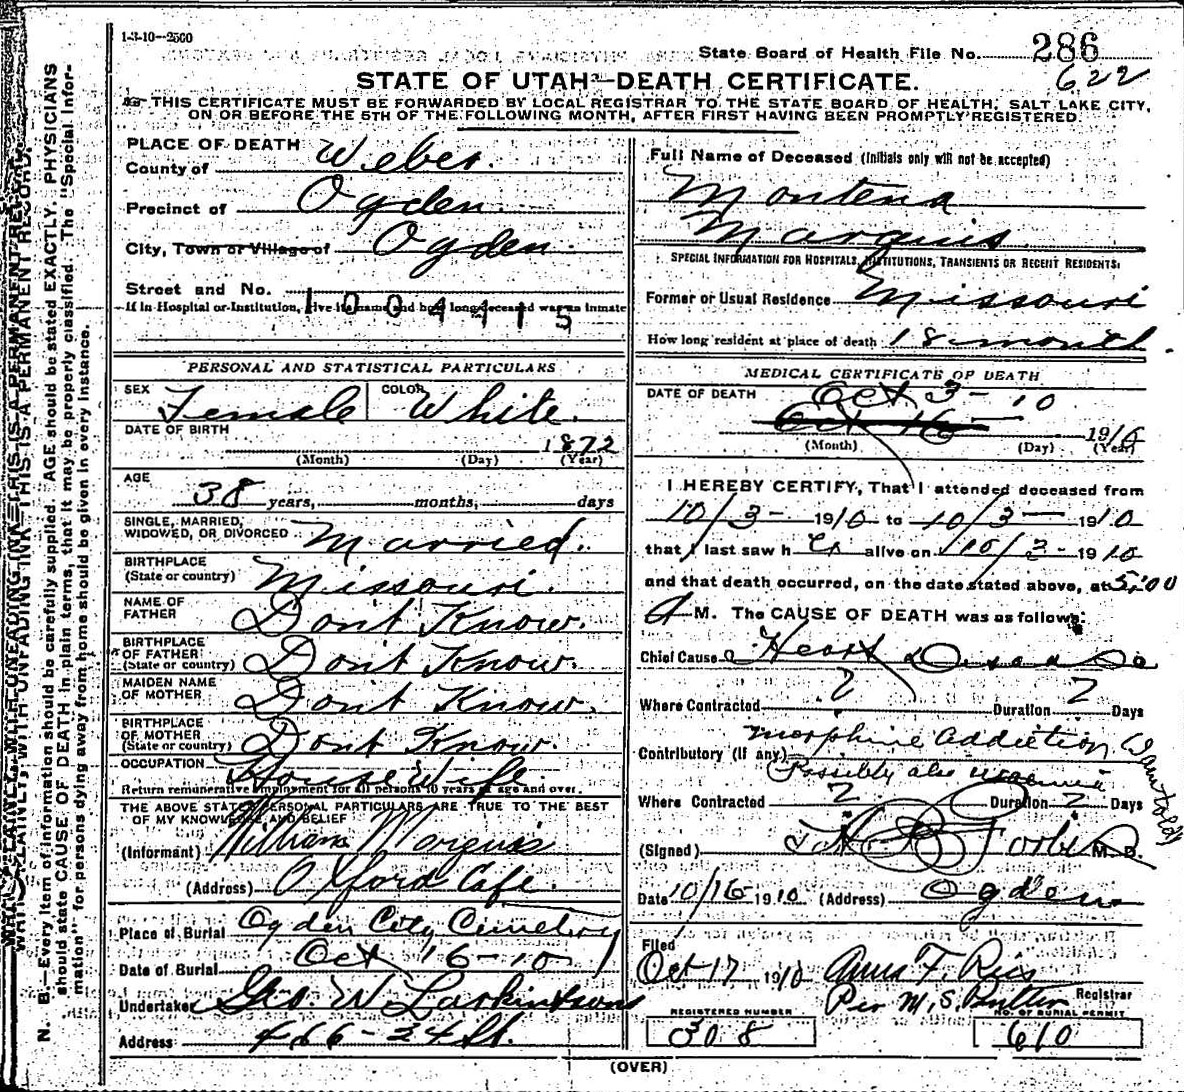 1-3-10--2500
State Board of Health File No. 286
622
STATE OF UTAH—DEATH CERTIFICATE.
THIS CERTIFICATE MUST BE FORWARDED BY LOCAL REGISTRAR TO THE STATE BOARD OF HEALTH, SALT LAKE CITY,
ON OR BEFORE THE 5TH OF THE FOLLOWING MONTH, AFTER FIRST HAVING BEEN PROMPTLY REGISTERED.
PLACE OF DEATH
County of Weber.
Precinct of Ogden.
City, Town or Village of Ogden.
Street and No.
If in Hospital or Institution, give its name and how long deceased was an inmate
1004415
PERSONAL AND STATISTICAL PARTICULARS
SEX Female COLOR White.
DATE OF BIRTH
1872
(Month) (Day) (Year)
AGE
38 years, months, days
SINGLE, MARRIED,
WIDOWED, OR DIVORCED Married.
BIRTHPLACE
(State or country) Missouri.
NAME OF
FATHER Dont Know.
BIRTHPLACE
OF FATHER
(State or country) Dont Know.
MAIDEN NAME
OF MOTHER Dont Know.
BIRTHPLACE
OF MOTHER
(State or country) Dont Know.
OCCUPATION House Wife.
Return remunerative employment for all persons 10 years of age and over.
THE ABOVE STATED PERSONAL PARTICULARS ARE TRUE TO THE BEST
OF MY KNOWLEDGE AND BELIEF
(Informant) William Marquis
(Address) Oxford Cafe.
Place of Burial Ogden City Cemetery
Date of Burial Oct 16-10
Undertaker Geo W. Larkin & Sons
Address 466-24 St.
Full Name of Deceased (Initials only will not be accepted)
Montena
Marquis
SPECIAL INFORMATION FOR HOSPITALS, INSTITUTIONS, TRANSIENTS OR RECENT RESIDENTS:
Former or Usual Residence Missouri
How long resident at place of death 18 month.
MEDICAL CERTIFICATE OF DEATH
DATE OF DEATH Oct 3-10
Oct 16 1910
(Month) (Day) (Year)
I HEREBY CERTIFY, That I attended deceased from
10/3- 1910 to 10/3- 1910
that I last saw h er alive on 10/3- 1910
and that death occurred, on the date stated above, at 5:00
A M. The CAUSE OF DEATH was as follows:
Chief Cause Heart Disease
Where Contracted ? Duration ? Days
Contributory (if any) Morphine addiction (I am told)
Possibly also
Where Contracted ? Duration ? Days
(Signed) Forbes M. D.
Date 10/16 1910 (Address) Ogden
Filed
Oct 17 1910 Anna F. Reis
Per M. S. Registrar
REGISTERED NUMBER NO. OF BURIAL PERMIT
308 610
(OVER)
WRITE PLAINLY, WITH UNFADING INK—THIS IS A PERMANENT RECORD.
N. B.—Every item of information should be carefully supplied. AGE should be stated EXACTLY. PHYSICIANS
should state CAUSE OF DEATH in plain terms, that it may be properly classified. The "Special Infor-
mation" for persons dying away from home should be given in every instance.